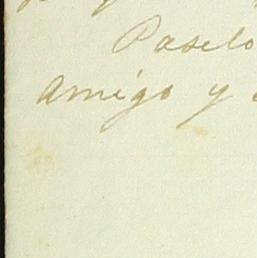 Paselo
amigo y